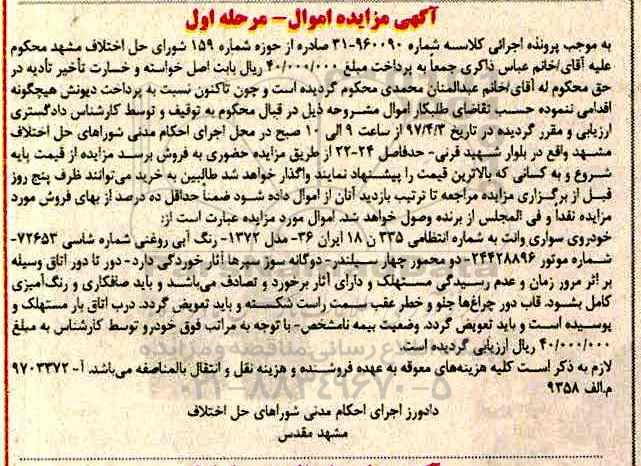 آگهی مزایده اموال- مرحله اول
به موجب پرونده اجرائی کلاسه شماره ۹۶۰۰۹۰-۳۱ صادره از حوزه شماره ۱۵۹ شورای حل اختلاف مشهد محکوم
علیه آقای/خانم عباس ذاکری جمعاً به پرداخت مبلغ ۴۰/۰۰۰/۰۰۰ ریال بابت اصل خواسته و خسارت تأخیر تأدیه در
حق محکوم له آقای/خانم عبدالمنان محمدی محکوم گردیده است و چون تاکنون نسبت به پرداخت دیونش هیچگونه
اقدامی ننموده حسب تقاضای طلبکار اموال مشروحه ذیل در قبال محکوم به توقیف و توسط کارشناس دادگستری
ارزیابی و مقرر گردیده در تاریخ ۹۷/۴/۳ از ساعت ۹ الی ۱۰ صبح در محل اجرای احکام مدنی شوراهای حل اختلاف
مشهد واقع در بلوار شهید قرنی- حدفاصل ۲۴-۲۲ از طریق مزایده حضوری به فروش برسد مزایده از قیمت پایه
شروع و به کسانی که بالاترین قیمت را پیشنهاد نمایند واگذار خواهد شد طالبین به خرید می‌توانند ظرف پنج روز
قبل از برگزاری مزایده مراجعه تا ترتیب بازدید آنان از اموال داده شود ضمناً حداقل ده درصد از بهای فروش مورد
مزایده نقداً و فی المجلس از برنده وصول خواهد شد. اموال مورد مزایده عبارت است از:
خودروی سواری وانت به شماره انتظامی ۳۳۵ ن ۱۸ ایران ۳۶- مدل ۱۳۷۲- رنگ آبی روغنی شماره شاسی ۷۲۶۵۳-
شماره موتور ۲۴۴۲۸۸۹۶- دو محمور چهار سیلندر- دوگانه سوز سپرها آثار خوردگی دارد- دور تا دور اتاق وسیله
بر اثر مرور زمان و عدم رسیدگی مستهلک و دارای آثار برخورد و تصادف می‌باشد و باید صافکاری و رنگ‌آمیزی
کامل بشود. قاب دور چراغها جلو و خطر عقب سمت راست شکسته و باید تعویض گردد. درب اتاق بار مستهلک و
پوسیده است و باید تعویض گردد. وضعیت بیمه نامشخص- با توجه به مراتب فوق خودرو توسط کارشناس به مبلغ
۴۰/۰۰۰/۰۰۰ ریال ارزیابی گردیده است.
لازم به ذکر است کلیه هزینه‌های معوقه به عهده فروشنده و هزینه نقل و انتقال بالمناصفه می‌باشد. آ- ۹۷۰۳۳۷۲
م.الف ۹۳۵۸
دادورز اجرای احکام مدنی شوراهای حل اختلاف
مشهد مقدس